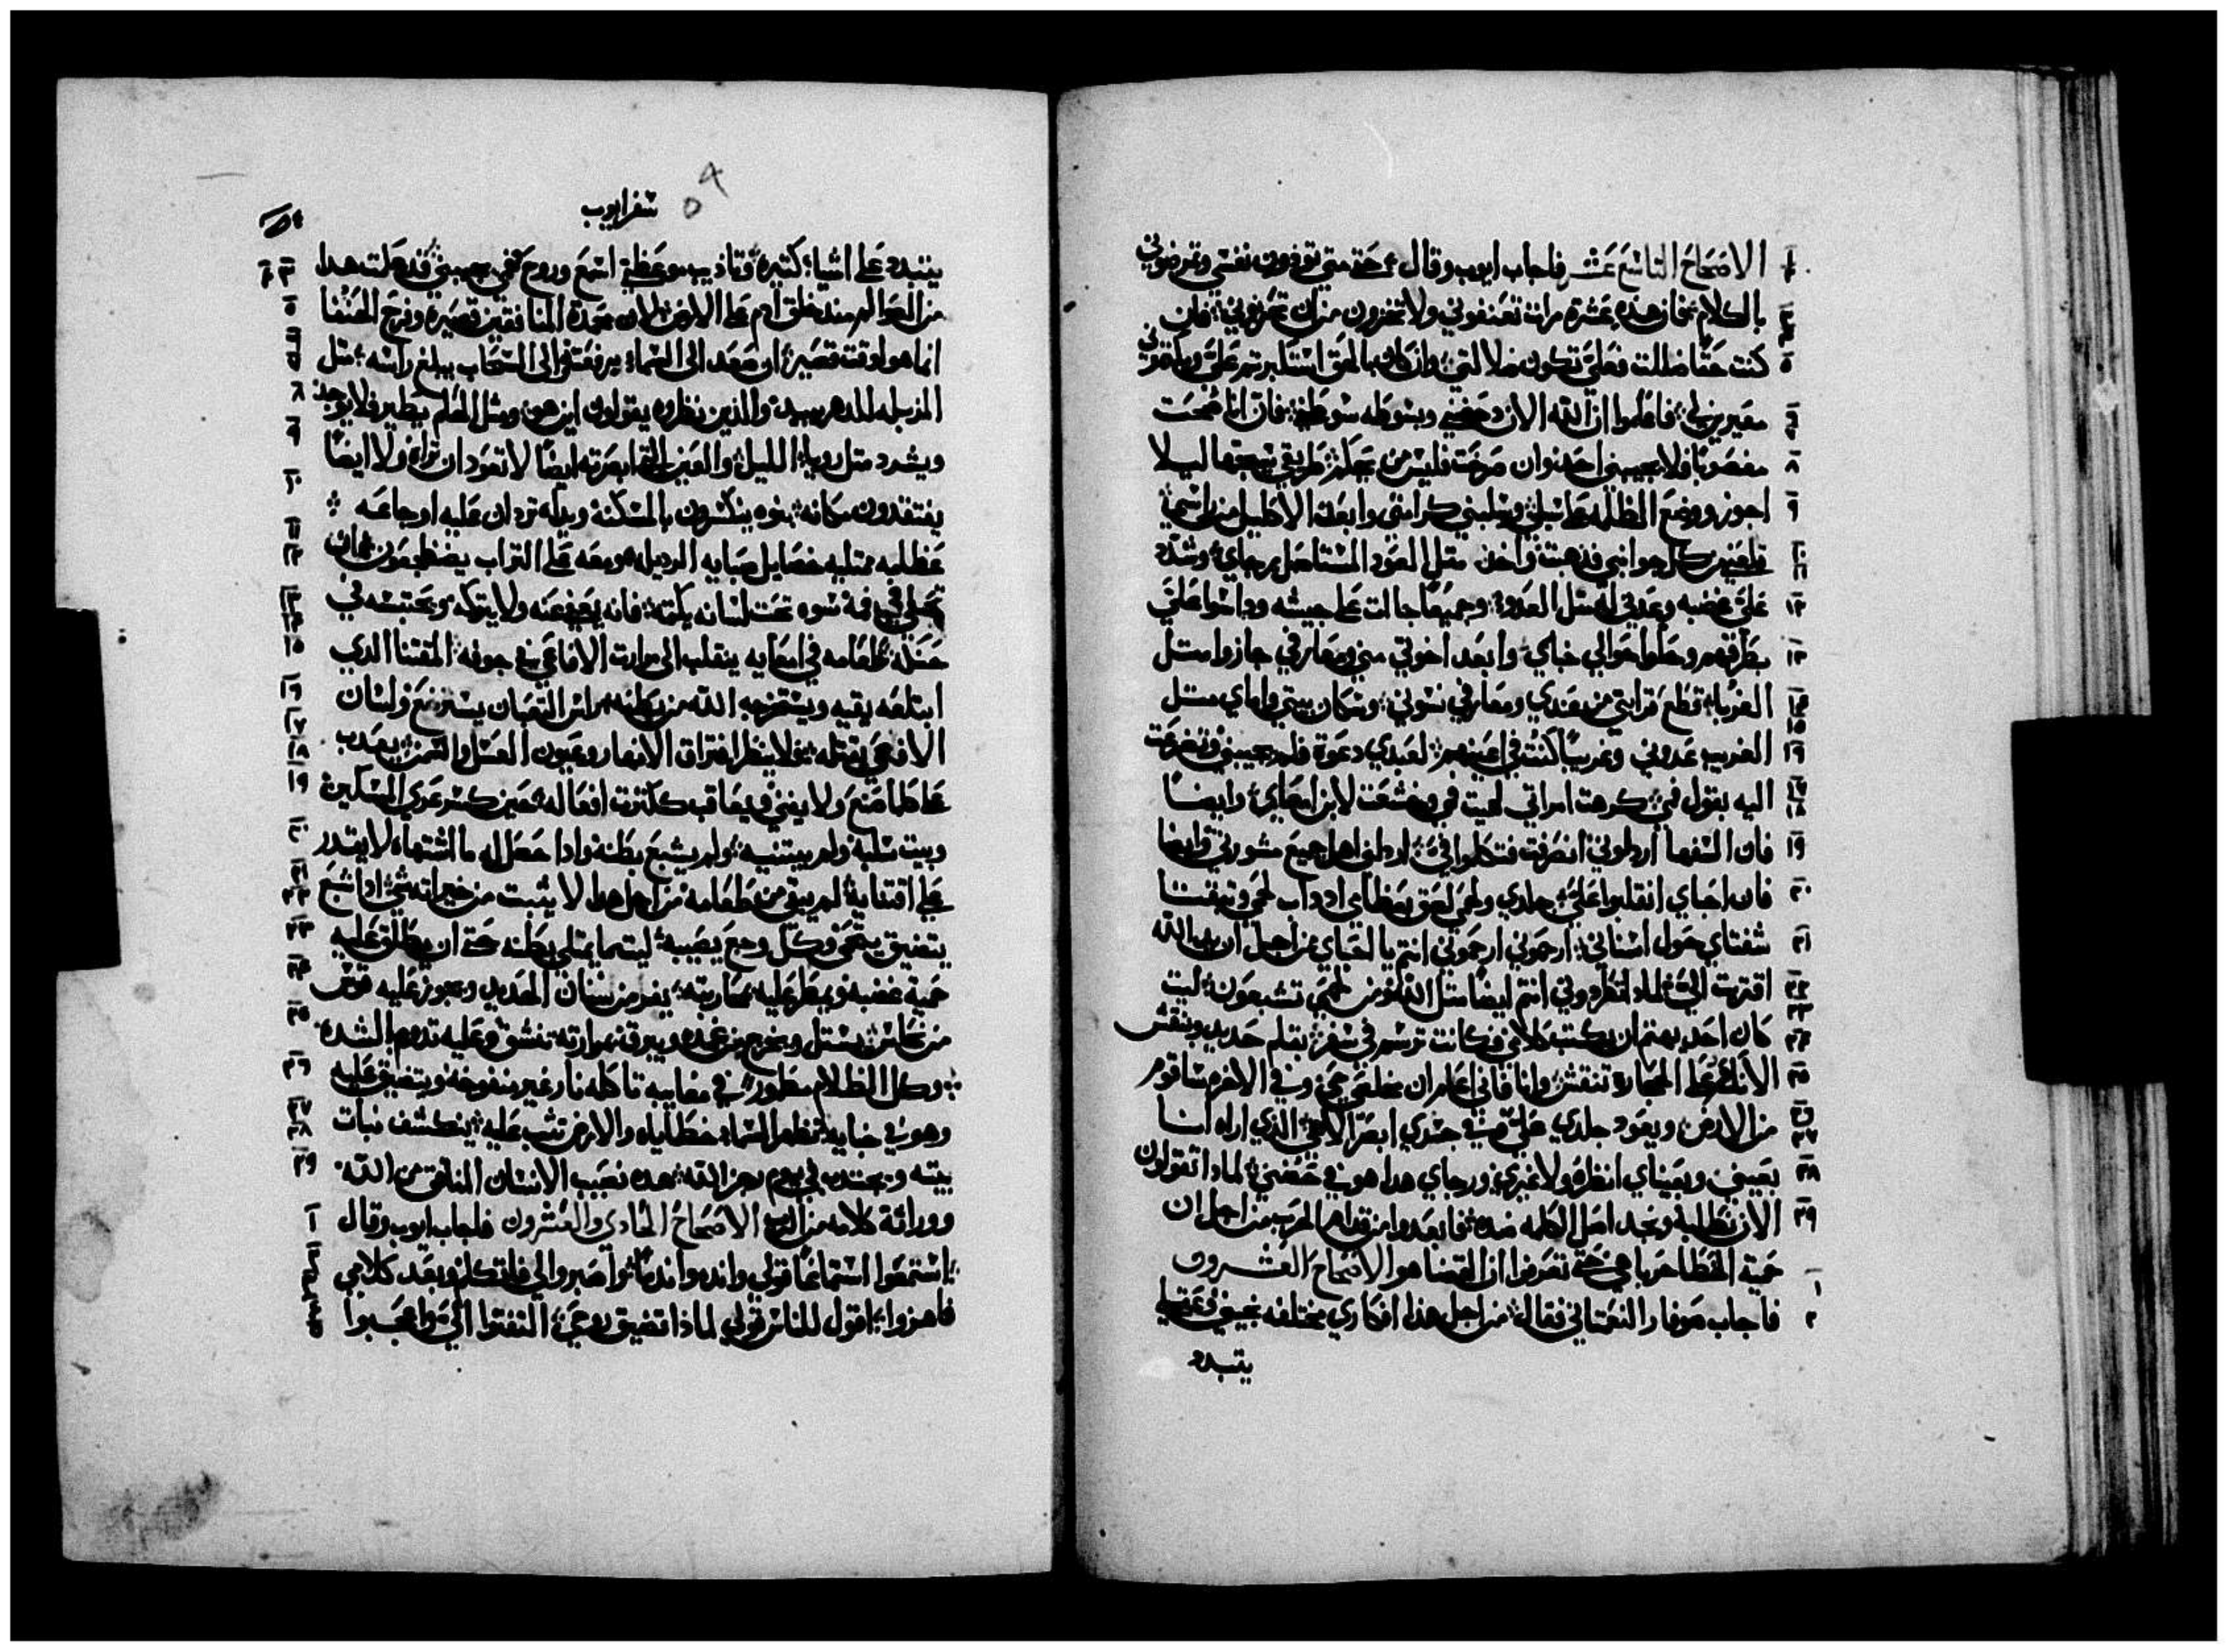 الاصحاح التاسع عشر فاجاب ايوب وقال حتى متي تؤذون نفسي وترضوني
بالكلام فان هذه عشرة مرات تعنفوني ولا تخزون من ان تحزنوني فان
كنت حقًا ضللت فعلي تكون ضلالتي وان كان بالحق استكبرتم علي
معيريني فاعلموا ان الله الان دحضني وبسوطه سوطني فان انا ضحت
مغصوبًا فلا يجيبني احد وان صرخت فليس من يحكم طريقي سيجها ليلا
اجوز ووضع الظلمه على سبلي وسلبني كرامتي وابعد الاكليل من راسي
من كل جوانبي فذهبت واخذ مثل العود المستاصل رجاي وشدد
علي غضبه وعدني له مثل العدو وجميعًا جات على جيشه وداسوا علي
بطرقهم وحلوا حوالي خباي وابعد اخوتي مني ومعارفي جازوا مثل
الغربا قطع قرابتي من عندي ومعارفي نسوني وسكان بيتي واماي مثل
الغريب عدوني وغريبًا كنت في اعينهم لعبدي دعوة فلم يجيبني وتضرعت
اليه بقول فمي كرهت امراتي لحيت فمي وخشعت لابن امعاي وايضًا
فان السفها اردلوني انصرفت فتكلوا في اردلني اهل جميع مشورتي وايضا
فان احباي انقلبوا علي جلدي ولحمي لصق بعظامي ادواب لحمي وتبقت
شفتاي حول اسناني ارحموني ارحموني انتم يا احباي من اجل ان يد الله
اقتربت الي لماذا تطردوني انتم ايضًا مثل الله ومن لحمي تشبعون ليت
كان احد يهتم ان يكتب كلامي كانت ترسم في سفر بقلم حديد وبنقش
الانك على الحجارة تنقش وانا فاني اعلم ان مخلصي حي وفي الاخره ساقوم
من الارض ويعود جلدي علي وفي جسدي ابصر الاهي الذي اراه انا
بعيني وبعيناي انظره ولا غيري ورجاي هدا هو في حضني لماذا تقولون
الان نطلبه ونجد اصل الكلمه ضده فابعدوا من قدام الحرب من اجل ان
حمية الخطا حربا هي حتى تعرفوا ان القضا هو الاصحاح العشرون
فاجاب صوفار النعماتي فقال من اجل هذا افكاري مختلفه تجيبني وعقلي
يتبدد
سفر ايوب
يتبدد على اشيا كتيره وتاديب موعظتي اسمع وروح فهمي يجيبني قد علمت هدا
من العوالم مند خلق ادم على الارض لان مجدة المنافقين قصيره وفرح الحنفا
انما هو لوقت قصير ان صعد الى السماء يرفعته والى السحاب يبلغ راسه مثل
المزبله للدهر يبيد والذين نظروه يقولون اين هو ومثل الحلم يطير فلا يوجد
ويشرد مثل رويا الليل والعين التي ابصرته ايضًا لا تعود ان تراه ولا ايضًا
يفتقدون مكانه بنوه ينكسرون بالمسكنه ويديه تردان عليه اوجاعه
عظامه ممتليه خصايل صبايه الرديله ومعه على التراب يضطجعون فان
تحلي في فمه سوه تحت لسانه يكتمه فانه يصفح عنه ولا يتركه ويحتبسه في
حنكه طعامه في امعايه ينقلب الى مرارت الافاعي في جوفه المقتنا الدي
ابتلعه يقيه ويستخرجه الله من بطنه راس الثعبان يسترضع ولسان
الافعي يقتله ولا ينظر افتراق الانهار وعيون العسل والسمن يعدب
على كلما صنع ولا يفني ويعاقب ككترت افعاله حين كسر عري المساكين
وبيت سلبه ولم يبتنيه ولم يشبع بطنه وادا حصل له ما اشتهاه لا يقدر
على اقتنايه لم يبق من طعامه من اجل هدا لا يثبت من خيراته شي ادا شبع
يتضيق يقحم وكل وجع يصيبه ليتما يمتلي بطنه حتى ان يطلق عليه
حمية غضبه ويمطر عليه محاربته يفر من سنان الحديد ويجوز عليه قوس
من نحاس يستل ويخرج من غمده ويبرق بمرارته تنشق وعليه تدوم الشده
وكل الظلام مطمور في مخابيه تاكله نار غير منفوخه ويتضيق عليه
وهو في خبايه تظهر السماء خطاياه والارض تثب عليه ينكشف نبات
بيته ويجتدب في يوم رجز الله هده نصيب الانسان المنافق من الله
ووراثة كلامه من الرب الاصحاح الحادي والعشرون فاجاب ايوب وقال
استمعوا استماعًا قولي واندموا اصبروا لي فاتكلم وبعد كلامي
فاهزوا اقول للناس قولي لماذا تضيق روحي التفتوا الي واعجبوا